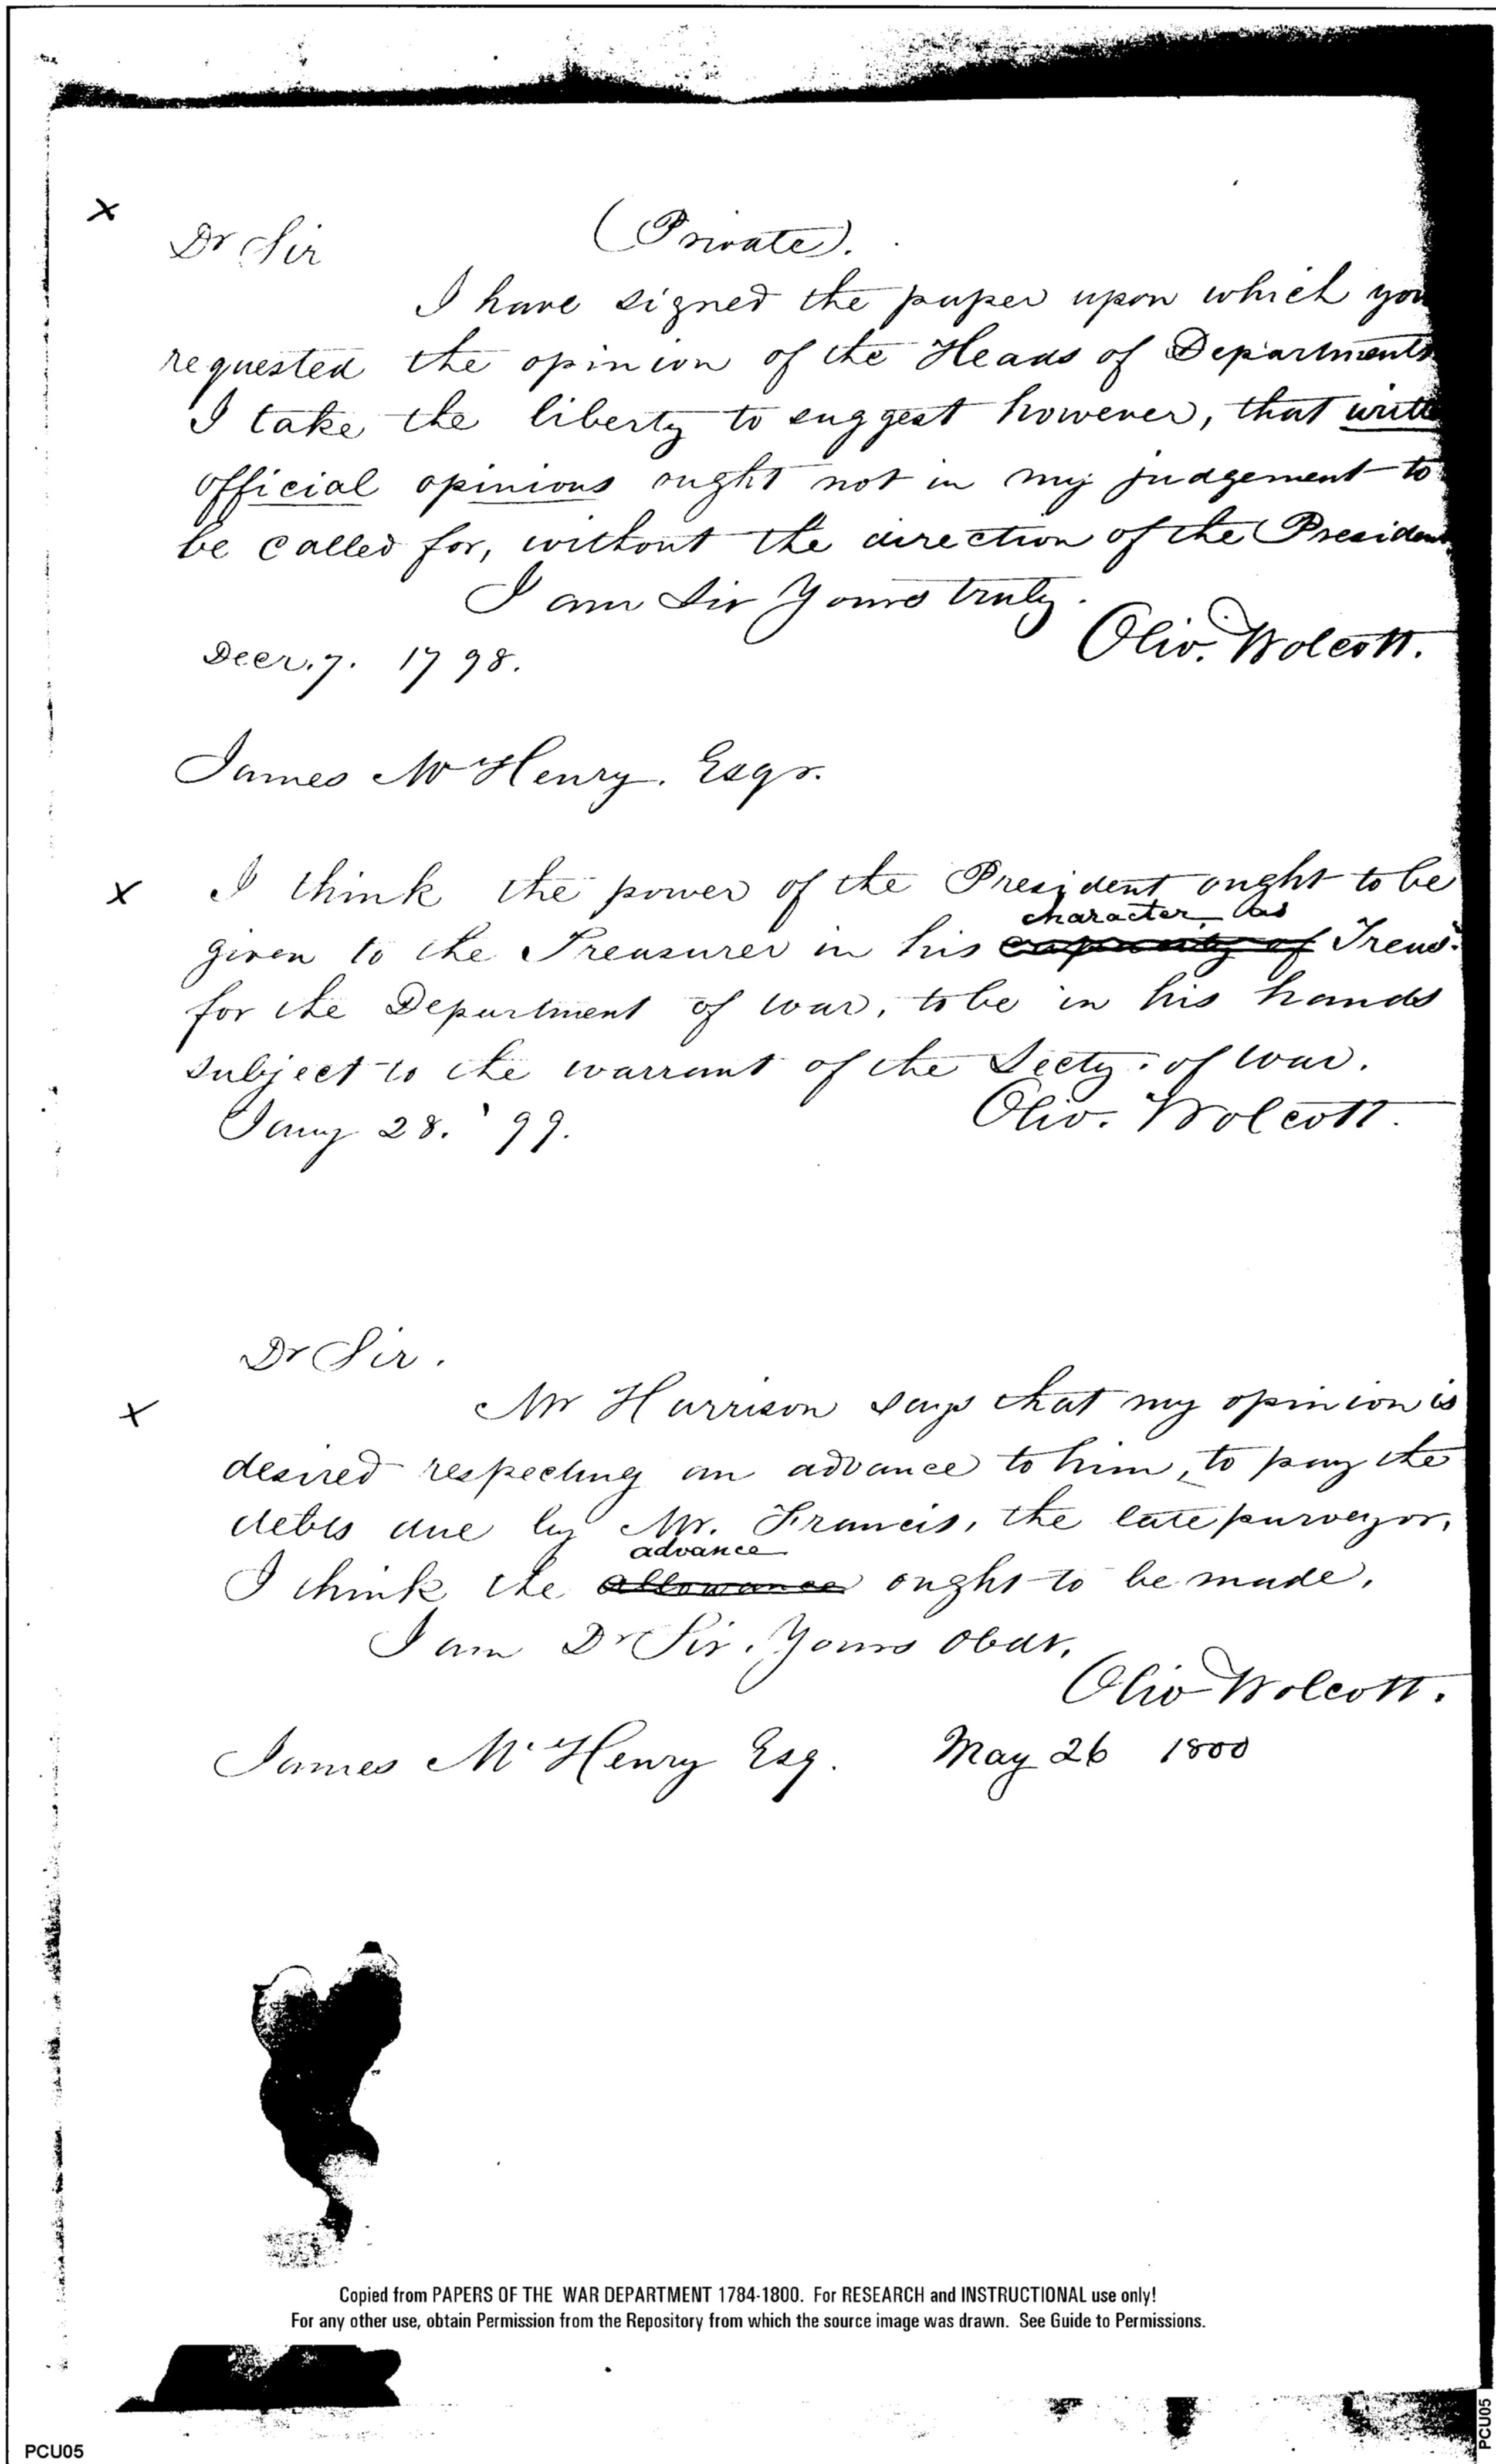 x
Dr Sir (Private).
I have signed the paper upon which you
requested the opinion of the Heads of Departments
I take the liberty to suggest however, that
official opinions ought not in my judgement to
be called for, without the direction of the President
I am Sir Yours truly.
Decr. 7. 1798. Oliv. Wolcott.
James McHenry. Esqr.
x I think the power of the President ought to be
character as
given to the Treasurer in his capacity of Treas.
for the Department of war, to be in his hands
subject to the warrant of the Secty. of war.
Jany 28. '99. Oliv. Wolcott.
Dr Sir.
x Mr Harrison says that my opinion is
desired respecting an advance to him, to pay the
debts due by Mr. Francis, the late purveyor,
advance
I think the allowance ought to be made.
I am Dr Sir. Yours Obdt.
Oliv Wolcott.
James McHenry Esq. May 26 1800
Copied from PAPERS OF THE WAR DEPARTMENT 1784-1800. For RESEARCH and INSTRUCTIONAL use only!
For any other use, obtain Permission from the Repository from which the source image was drawn. See Guide to Permissions.
PCU05
PCU05